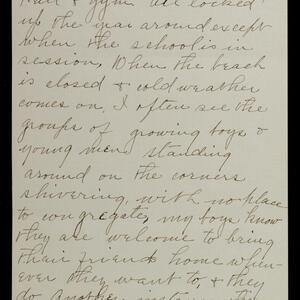 Hall & gym all locked
up the year around except
when the school is in
session. When the beach
is closed & cold weather
comes on, I often see the
groups of growing boys &
young men standing
around on the corners
shivering, with no place
to congregate, my boys know
they are welcome to bring
their friends home when-
ever they want to, & they
do Another